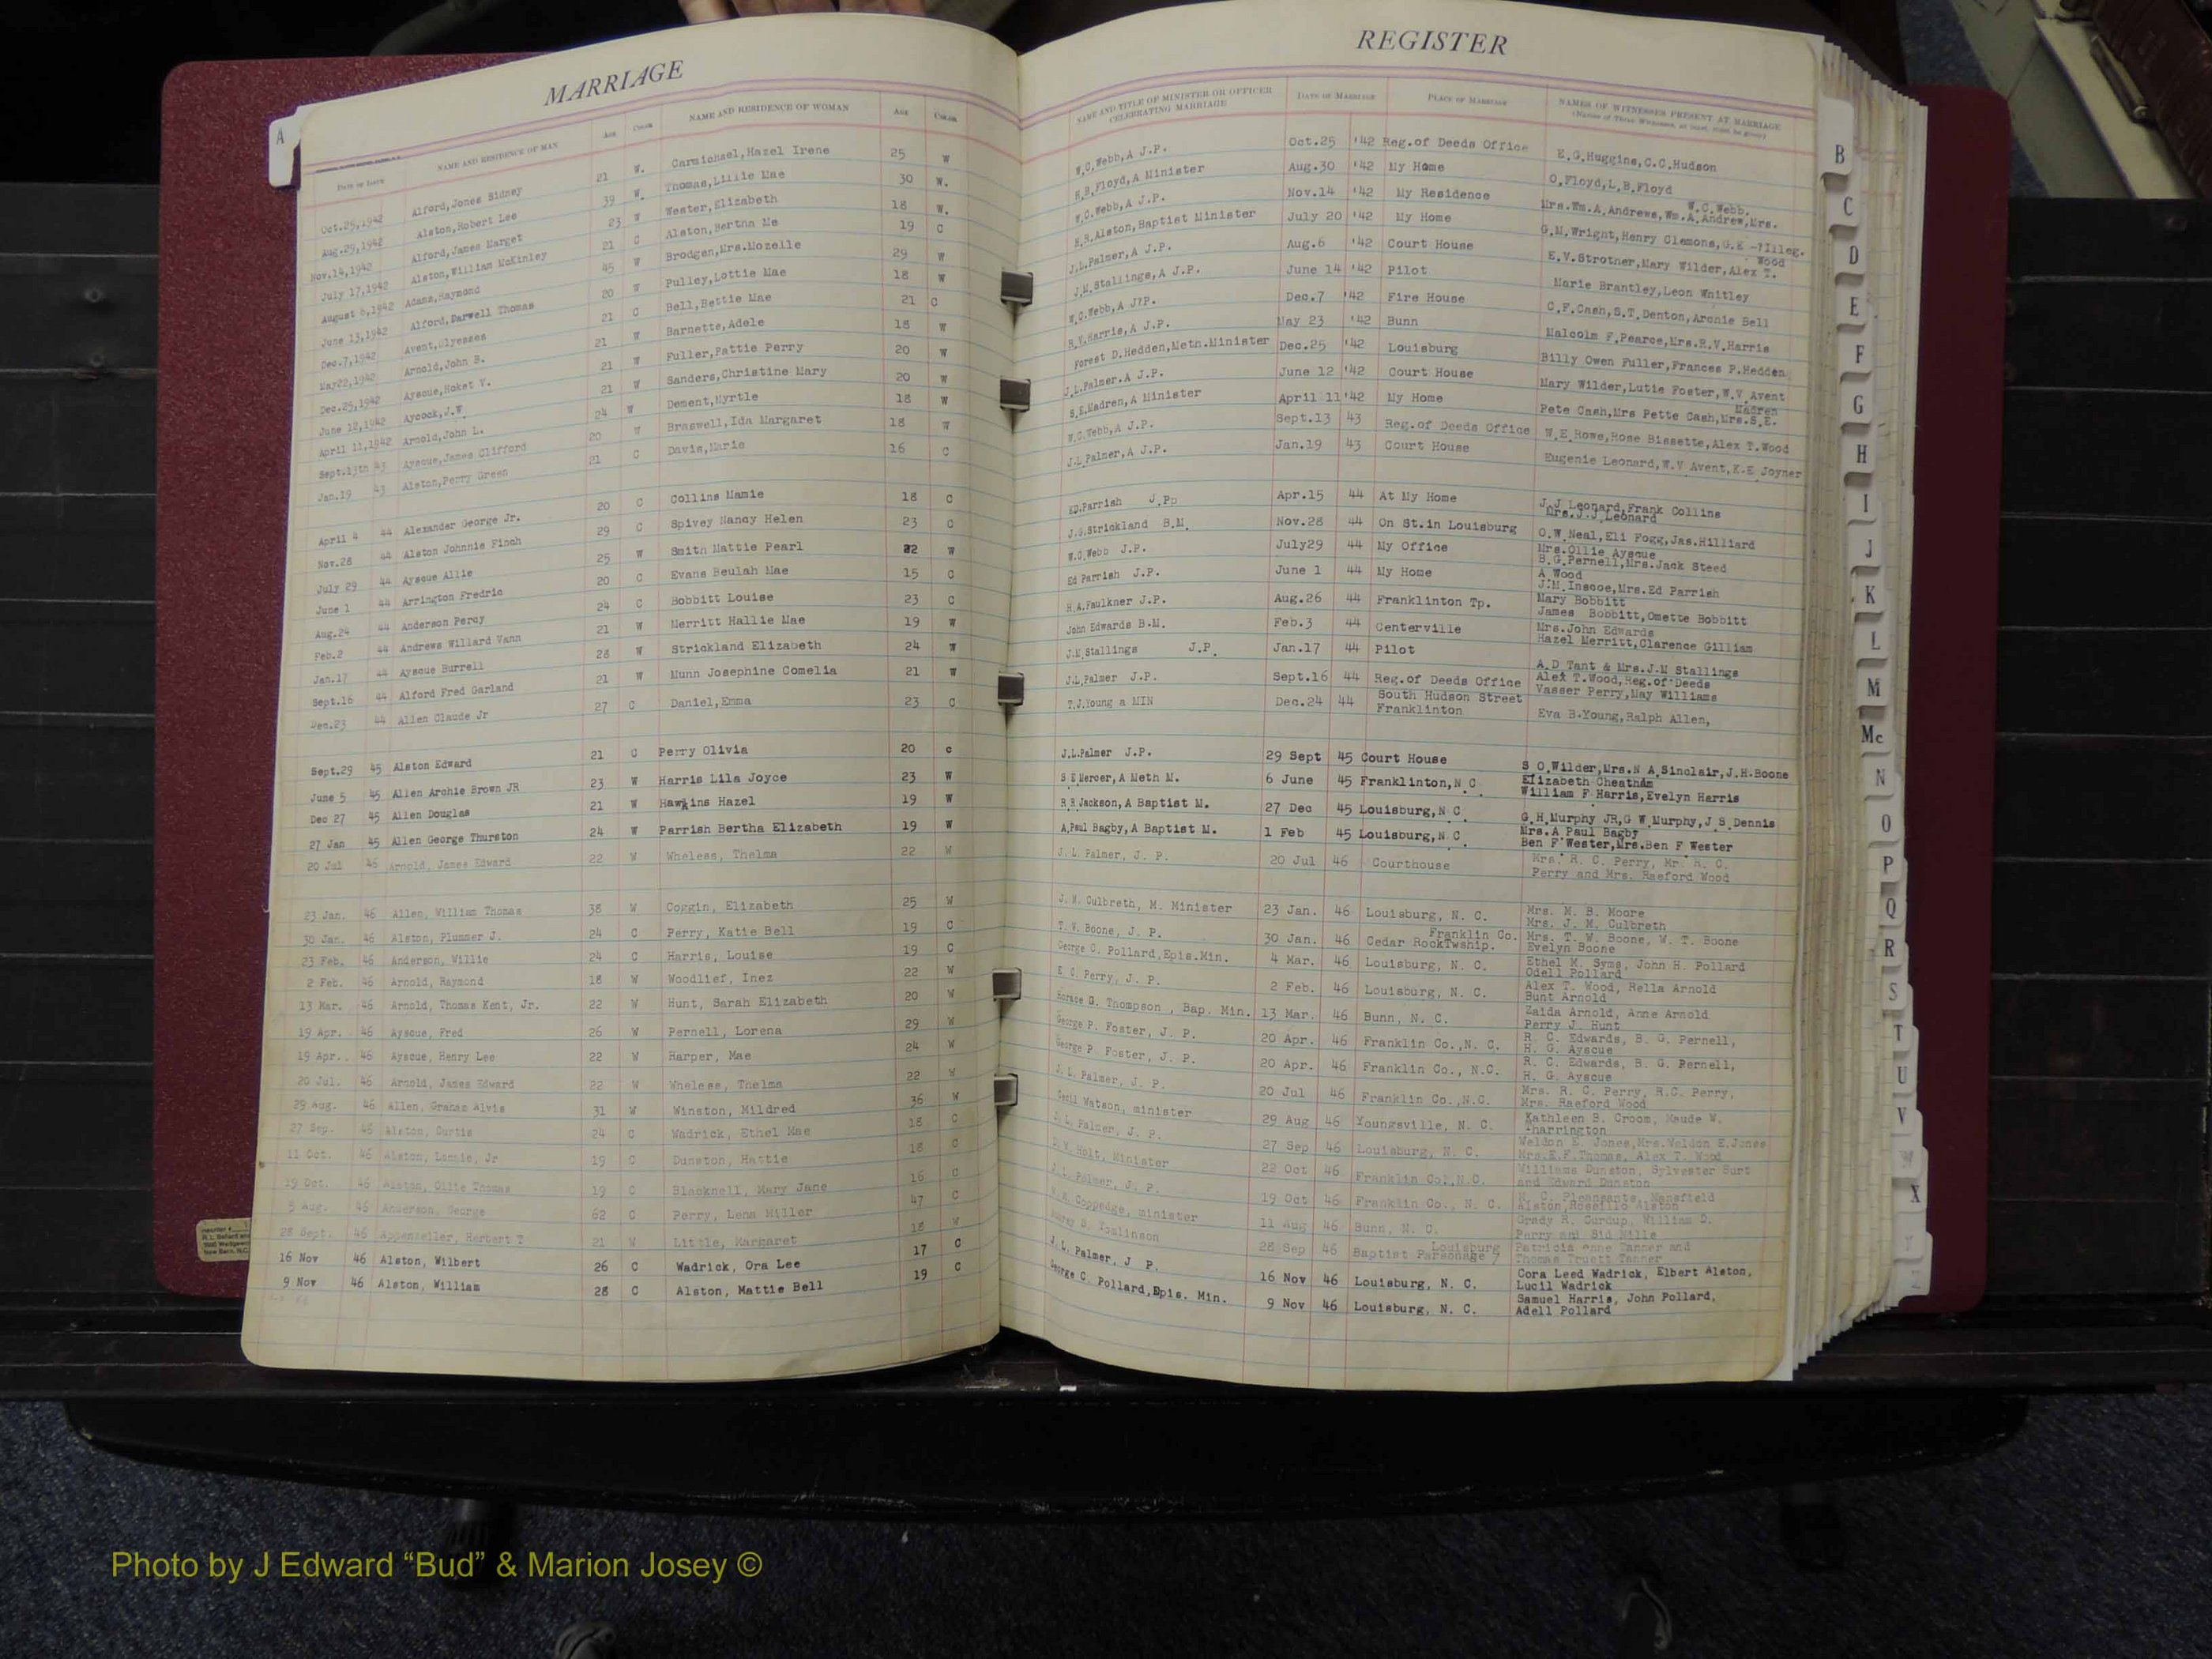 MARRIAGE
REGISTER
A
DATE OF ISSUE NAME AND RESIDENCE OF MAN AGE COLOR NAME AND RESIDENCE OF WOMAN AGE COLOR NAME AND TITLE OF MINISTER OR OFFICER CELEBRATING MARRIAGE DATE OF MARRIAGE PLACE OF MARRIAGE NAMES OF WITNESSES PRESENT AT MARRIAGE
(Names of Three Witnesses, at least, must be given)
Oct.25,1942 Alford,Jones Sidney 21 W. Carmichael,Hazel Irene 25 W W.C.Webb,A J.P. Oct.25 '42 Reg.of Deeds Office E.G.Huggins,C.C.Hudson
Aug.29,1942 Alston,Robert Lee 39 W. Thomas,Lillie Mae 30 W. H.B.Floyd,A Minister Aug.30 '42 My Home O.Floyd,L.B.Floyd
Nov.14,1942 Alford,James Marget 23 W Wester,Elizabeth 18 W. W.C.Webb,A J.P. Nov.14 '42 My Residence Mrs.Wm.A.Andrews,Wm.A.Andrew,Mrs. W.C.Webb.
July 17,1942 Alston,William McKinley 21 C Alston,Bertha Me 19 C H.R.Alston,Baptist Minister July 20 '42 My Home G.M.Wright,Henry Clemons,G.E -?Illeg.
August 6,1942 Adams,Raymond 45 W Brodgen,Mrs.Mozelle 29 W J.L.Palmer,A J.P. Aug.6 '42 Court House E.V.Strother,Mary Wilder,Alex T. Wood
June 13,1942 Alford,Darwell Thomas 20 W Pulley,Lottie Mae 18 W J.M.Stallings,A J.P. June 14 '42 Pilot Marie Brantley,Leon Whitley
Dec.7,1942 Avent,Ulyesses 21 C Bell,Bettie Mae 21 C W.C.Webb,A J?P. Dec.7 '42 Fire House C.F.Cash,S.T.Denton,Archie Bell
May22,1942 Arnold,John B. 21 W Barnette,Adele 18 W R.V.Harris,A J.P. May 23 '42 Bunn Malcolm F.Pearce,Mrs.R.V.Harris
Dec.25,1942 Ayscue,Hoket V. 21 W Fuller,Pattie Perry 20 W Forest D.Hedden,Meth.Minister Dec.25 '42 Louisburg Billy Owen Fuller,Frances P.Hedden
June 12,1942 Aycock,J.W 21 W Sanders,Christine Mary 20 W J.L.Palmer.A J.P. June 12 '42 Court House Mary Wilder,Lutie Foster,W.V Avent
April 11,1942 Arnold,John L. 24 W Dement,Myrtle 18 W S.E.Madren,A Minister April 11 '42 My Home Pete Cash,Mrs Pette Cash,Mrs.S.E. Madren
Sept.13th 43 Ayscue,James Clifford 20 W Braswell,Ida Margaret 18 W W.C.Webb,A J.P. Sept.13 43 Reg.of Deeds Office W.E.Howe,Hose Bissette,Alex T.Wood
Jan.19 43 Alston,Perry Green 21 C Davis,Marie 16 C J.L.Palmer,A J.P. Jan.19 43 Court House Eugenie Leonard,W.V Avent,K.E Joyner
April 4 44 Alexander George Jr. 20 C Collins Mamie 18 C ED.Parrish J.Pp Apr.15 44 At My Home J.J Leonard,Frank Collins
Mrs.J.J Leonard
Nov.28 44 Alston Johnnie Finch 29 C Spivey Nancy Helen 23 C J.G.Strickland B.M. Nov.28 44 On St.in Louisburg O.W.Neal,Eli Fogg,Jas.Hilliard
July 29 44 Ayscue Allie 25 W Smith Mattie Pearl 22 W W.C.Webb J.P. July29 44 My Office Mrs.Ollie Ayscue
B.G.Pernell,Mrs.Jack Steed
June 1 44 Arrington Fredric 20 C Evans Beulah Mae 15 C Ed Parrish J.P. June 1 44 My Home A Wood
J.M.Inscoe,Mrs.Ed Parrish
Aug.24 44 Anderson Percy 24 C Bobbitt Louise 23 C H.A.Faulkner J.P. Aug.26 44 Franklinton Tp. Mary Bobbitt
James Bobbitt,Omette Bobbitt
Feb.2 44 Andrews Willard Vann 21 W Merritt Hallie Mae 19 W John Edwards B.M. Feb.3 44 Centerville Mrs.John Edwards
Hazel Merritt,Clarence Gilliam
Jan.17 44 Ayscue Burrell 28 W Strickland Elizabeth 24 W J.M.Stallings J.P. Jan.17 44 Pilot A.D Tant & Mrs.J.M Stallings
Sept.16 44 Alford Fred Garland 21 W Munn Josephine Comelia 21 W J.L.Palmer J.P. Sept.16 44 Reg.of Deeds Office Alex T.Wood,Reg.of Deeds
Vasser Perry,May Williams
Dec.23 44 Allen Claude Jr 27 C Daniel,Emma 23 C T.J.Young a MIN Dec.24 44 South Hudson Street
Franklinton Eva B.Young,Ralph Allen,
Sept.29 45 Alston Edward 21 C Perry Olivia 20 c J.L.Palmer J.P. 29 Sept 45 Court House S O.Wilder,Mrs.N A.Sinclair,J.H.Boone
June 5 45 Allen Archie Brown JR 23 W Harris Lila Joyce 23 W S E Mercer,A Meth M. 6 June 45 Franklinton,N.C. Elizabeth Cheatham
William F.Harris,Evelyn Harris
Dec 27 45 Allen Douglas 21 W Hawkins Hazel 19 W R R Jackson,A Baptist M. 27 Dec 45 Louisburg,N.C. G.H.Murphy JR,G W.Murphy,J S.Dennis
27 Jan 45 Allen George Thurston 24 W Parrish Bertha Elizabeth 19 W A.Paul Bagby,A Baptist M. 1 Feb 45 Louisburg,N.C. Mrs.A Paul Bagby
Ben F Wester,Mrs.Ben F Wester
20 Jul 46 Arnold, James Edward 22 W Wheless, Thelma 22 W J. L. Palmer, J. P. 20 Jul 46 Courthouse Mrs. R. C. Perry, Mr. R. C.
Perry and Mrs. Raeford Wood
23 Jan. 46 Allen, William Thomas 38 W Coggin, Elizabeth 25 W J. M. Culbreth, M. Minister 23 Jan. 46 Louisburg, N. C. Mrs. M. B. Moore
Mrs. J. M. Culbreth
30 Jan. 46 Alston, Plummer J. 24 C Perry, Katie Bell 19 C T. W. Boone, J. P. 30 Jan. 46 Franklin Co.
Cedar RockTwship. Mrs. T. W. Boone, W. T. Boone
Evelyn Boone
23 Feb. 46 Anderson, Willie 24 C Harris, Louise 19 C George C. Pollard,Epis.Min. 4 Mar. 46 Louisburg, N. C. Ethel M. Syms, John H. Pollard
Odell Pollard
2 Feb. 46 Arnold, Raymond 18 W Woodlief, Inez 22 W E. C. Perry, J. P. 2 Feb. 46 Louisburg, N. C. Alex T. Wood, Rella Arnold
Bunt Arnold
13 Mar. 46 Arnold, Thomas Kent, Jr. 22 W Hunt, Sarah Elizabeth 20 W Horace G. Thompson , Bap. Min. 13 Mar. 46 Bunn, N. C. Zaida Arnold, Anne Arnold
Perry J. Hunt
19 Apr. 46 Ayscue, Fred 26 W Pernell, Lorena 29 W George P. Foster, J. P. 20 Apr. 46 Franklin Co.,N. C. R. C. Edwards, B. G. Pernell,
H. G. Ayscue
19 Apr.. 46 Ayscue, Henry Lee 22 W Harper, Mae 24 W George P. Foster, J. P. 20 Apr. 46 Franklin Co., N.C. R. C. Edwards, B. G. Pernell,
H. G. Ayscue
20 Jul. 46 Arnold, James Edward 22 W Wheless, Thelma 22 W J. L. Palmer, J. P. 20 Jul 46 Franklin Co.,N.C. Mrs. R. C. Perry, R.C. Perry,
Mrs. Raeford Wood
29 Aug. 46 Allen, Graham Alvis 31 W Winston, Mildred 36 W Cecil Watson, minister 29 Aug 46 Youngsville, N. C. Kathleen B. Croom, Maude W.
Tharrington
27 Sep. 46 Alston, Curtis 24 C Wadrick, Ethel Mae 18 C J. L. Palmer, J. P. 27 Sep 46 Louisburg, N. C. Weldon E. Jones,Mrs.Weldon E.Jones
Mrs.E.F.Thomas, Alex T. Wood
11 Oct. 46 Alston, Lonnie, Jr 19 C Dunston, Hattie 18 C Holt, Minister 22 Oct 46 Franklin Co.,N.C. Williams Dunston, Sylvester Burt
and Edward Dunston
19 Oct. 46 Alston, Ollie Thomas 19 C Blacknell, Mary Jane 16 C J. L. Palmer, J. P. 19 Oct 46 Franklin Co., N. C. Pleasants, Mansfield
Alston,Roseillo Alston
5 Aug. 46 Anderson, George 62 C Perry, Lena Miller 47 C Coppedge, minister 11 Aug 46 Bunn, N. C. Grady R. Curdup, William D.
Perry and Sid Mills
28 Sept. 46 Appenzeller, Herbert T 21 W Little, Margaret 18 W Aubrey S. Tomlinson 28 Sep 46 Louisburg
Baptist Parsonage Patricia Anne Tanner and
Thomas Truett Tanner
16 Nov 46 Alston, Wilbert 26 C Wadrick, Ora Lee 17 C J. L. Palmer, J P. 16 Nov 46 Louisburg, N. C. Cora Leed Wadrick, Elbert Alston,
Lucil Wadrick
9 Nov 46 Alston, William 28 C Alston, Mattie Bell 19 C George C. Pollard,Epis. Min. 9 Nov 46 Louisburg, N. C. Samuel Harris, John Pollard,
Adell Pollard
B
C
D
E
F
G
H
I
J
K
L
M
Mc
N
O
P
Q
R
S
T
U
V
W
X
Y
Photo by J Edward “Bud” & Marion Josey ©